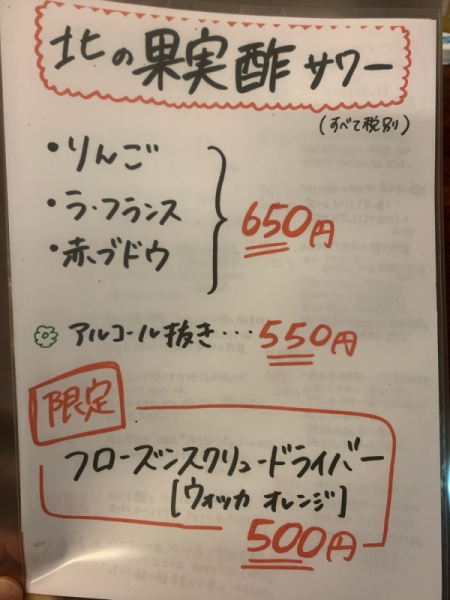 北の果実酢サワー
(すべて税別)
・りんご
・ラ・フランス
・赤ブドウ
650円
アルコール抜き・・・550円
限定
フローズンスクリュードライバー
[ウォッカ オレンジ]
500円